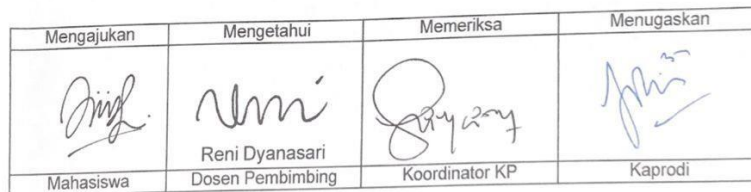 Mengajukan Mengetahui Memeriksa Menugaskan
Reni Dyanasari
Mahasiswa Dosen Pembimbing Koordinator KP Kaprodi